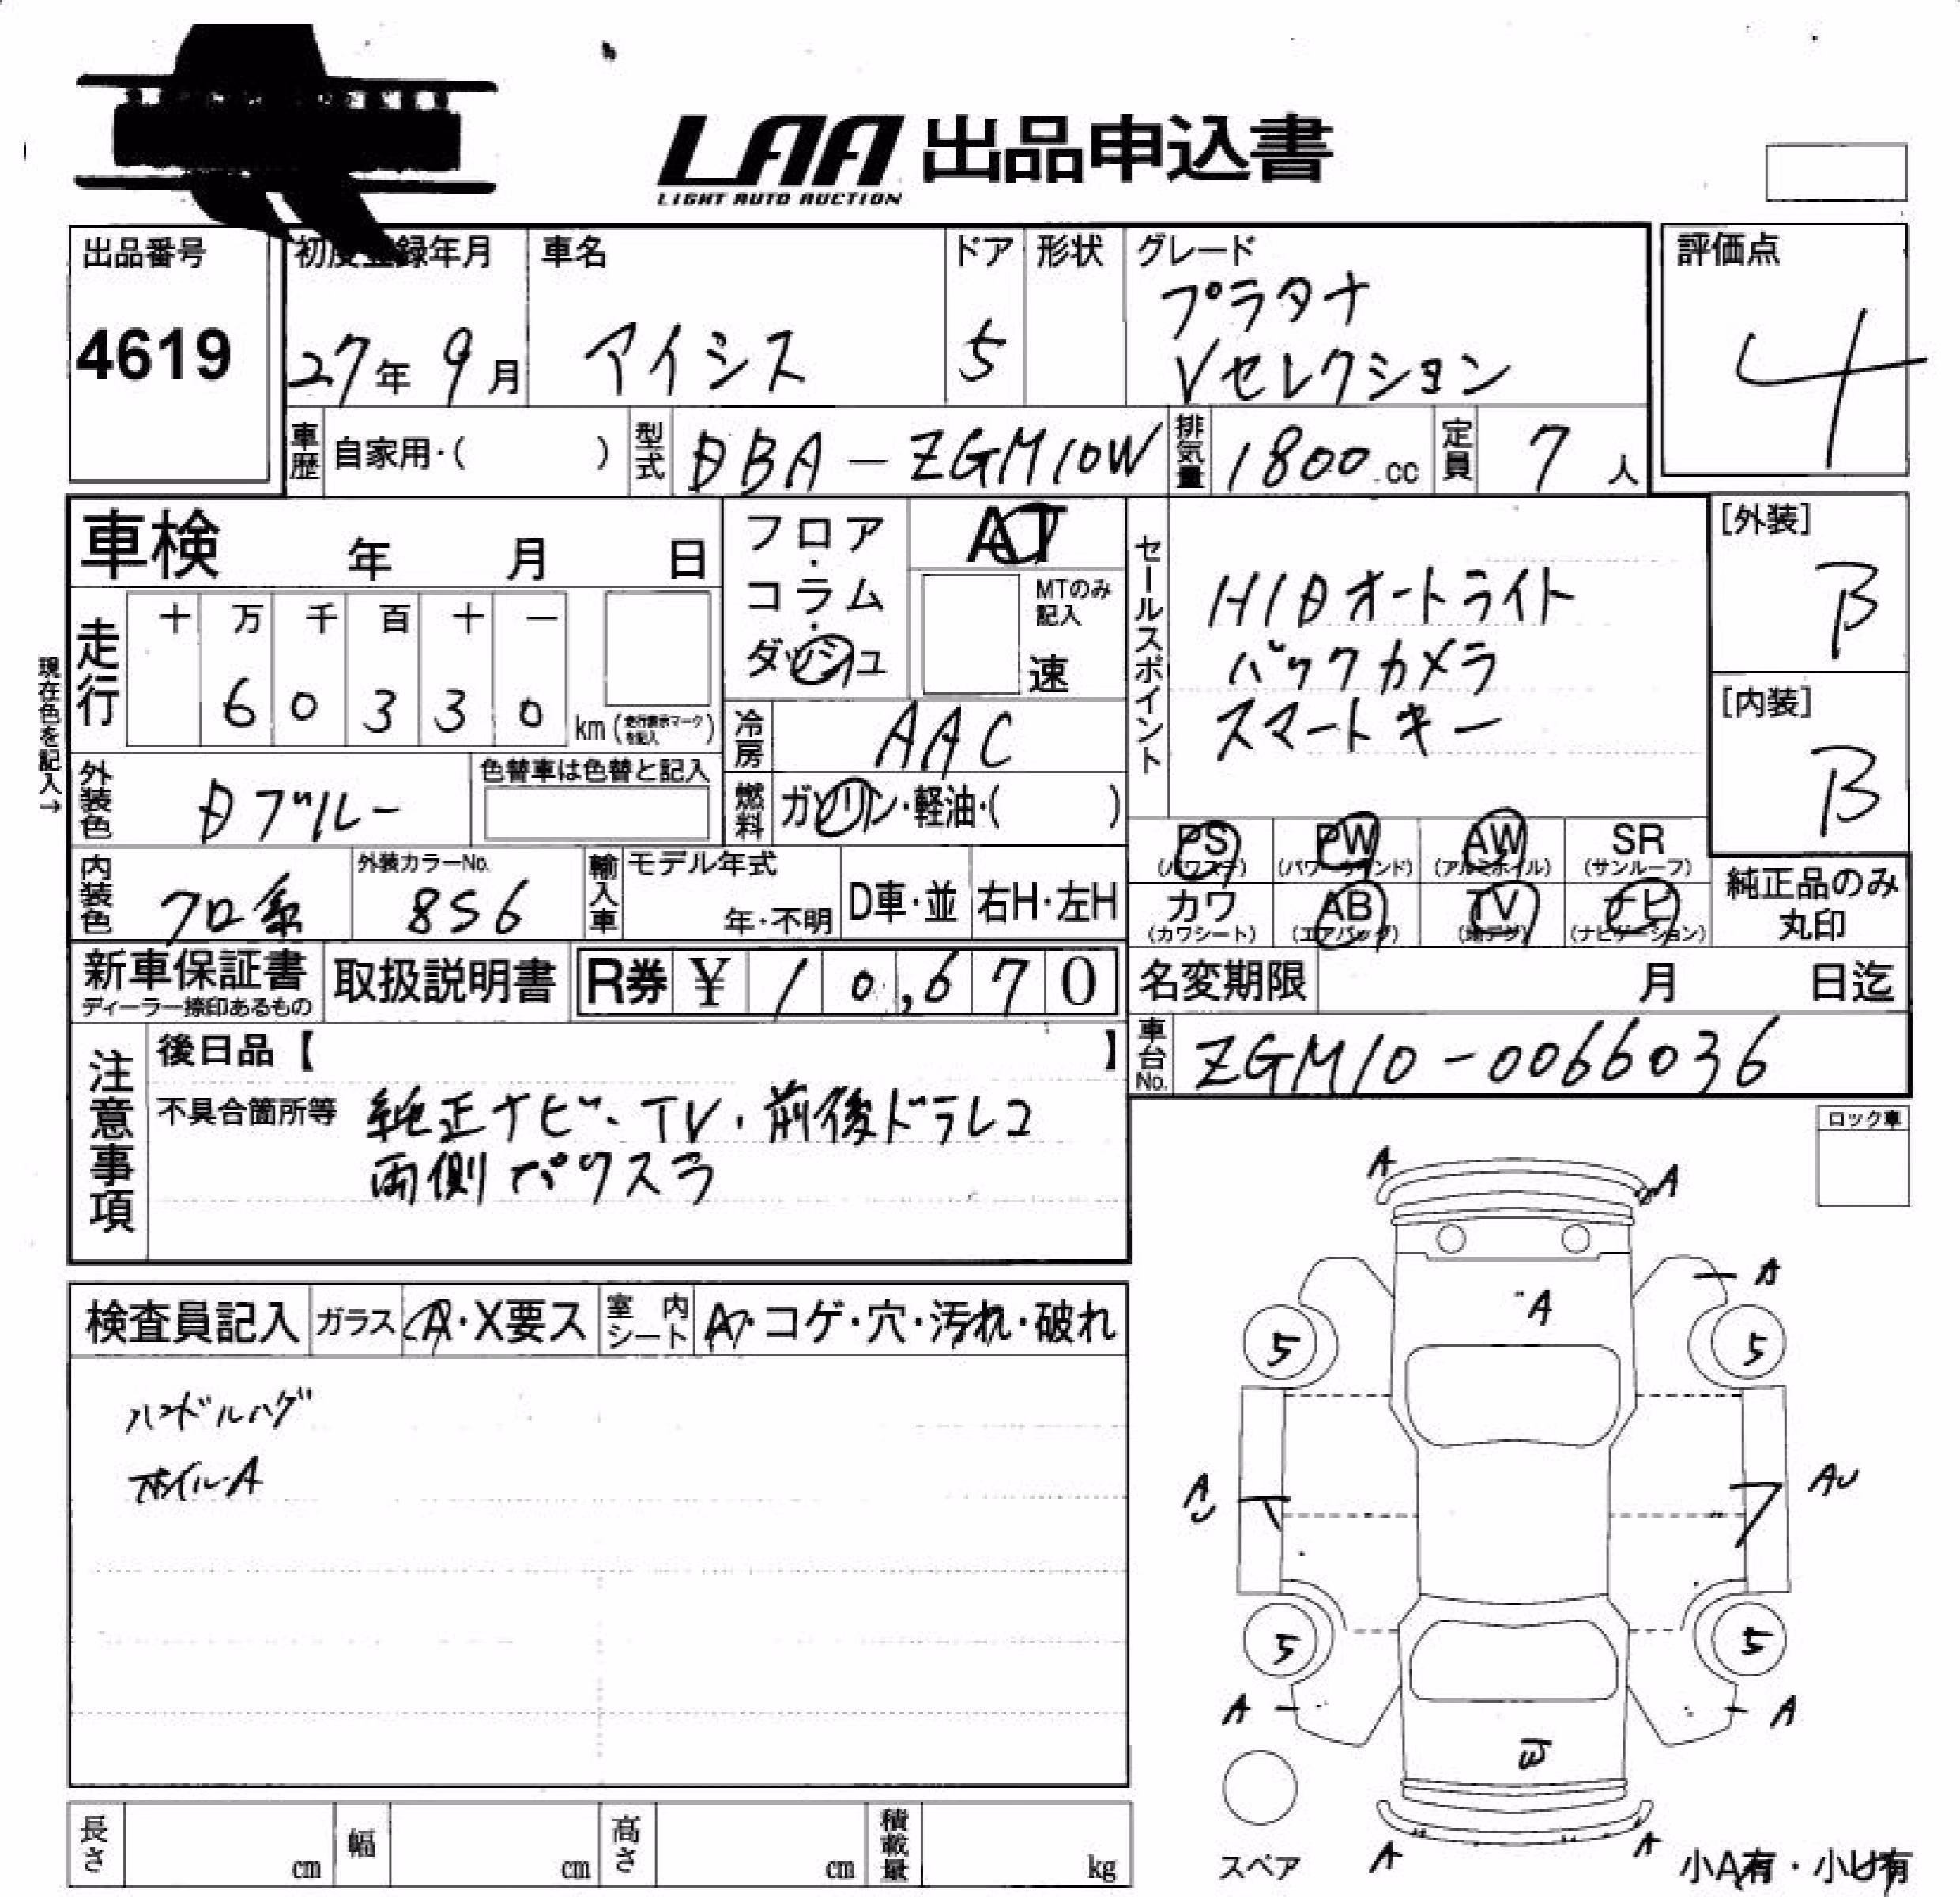 LAA 出品申込書
LIGHT AUTO AUCTION
出品番号
4619
初度登録年月
27年 9月
車名
アイシス
ドア
5
形状
グレード
プラタナ
Vセレクション
評価点
4
車歴 自家用・( )
型式 DBA-ZGM10W
排気量 1800 cc
定員 7 人
車検 年 月 日
フロア・コラム・ダッシュ
AT
MTのみ記入
速
セールスポイント
HIDオートライト
バックカメラ
スマートキー
[外装]
B
[内装]
B
現在色を記入→
走行 十 万 千 百 十 一
6 0 3 3 0 km (走行表示マークを記入)
冷房 AAC
外装色 Dブルー
色替車は色替と記入
燃料 ガソリン・軽油・( )
PS (パワステ)
PW (パワーウインド)
AW (アルミホイル)
SR (サンルーフ)
カワ (カワシート)
AB (エアバッグ)
TV (地デジ)
ナビ (ナビゲーション)
純正品のみ丸印
内装色 クロ系
外装カラーNo.
8S6
輸入車 モデル年式
年・不明
D車・並
右H・左H
新車保証書
ディーラー捺印あるもの
取扱説明書
R券 ¥ 10,670
名変期限 月 日迄
車台No. ZGM10-0066036
注意事項
後日品【 】
不具合箇所等 純正ナビ・TV・前後ドラレコ
両側パワスラ
ロック車
検査員記入 ガラス A・X要ス 室内シート A・コゲ・穴・汚れ・破れ
ハンドルハゲ
ホイルA
A A
A
A
5 5
A AU
5 5
A A
A A
スペア
小A有・小U有
長さ cm
幅 cm
高さ cm
積載量 kg